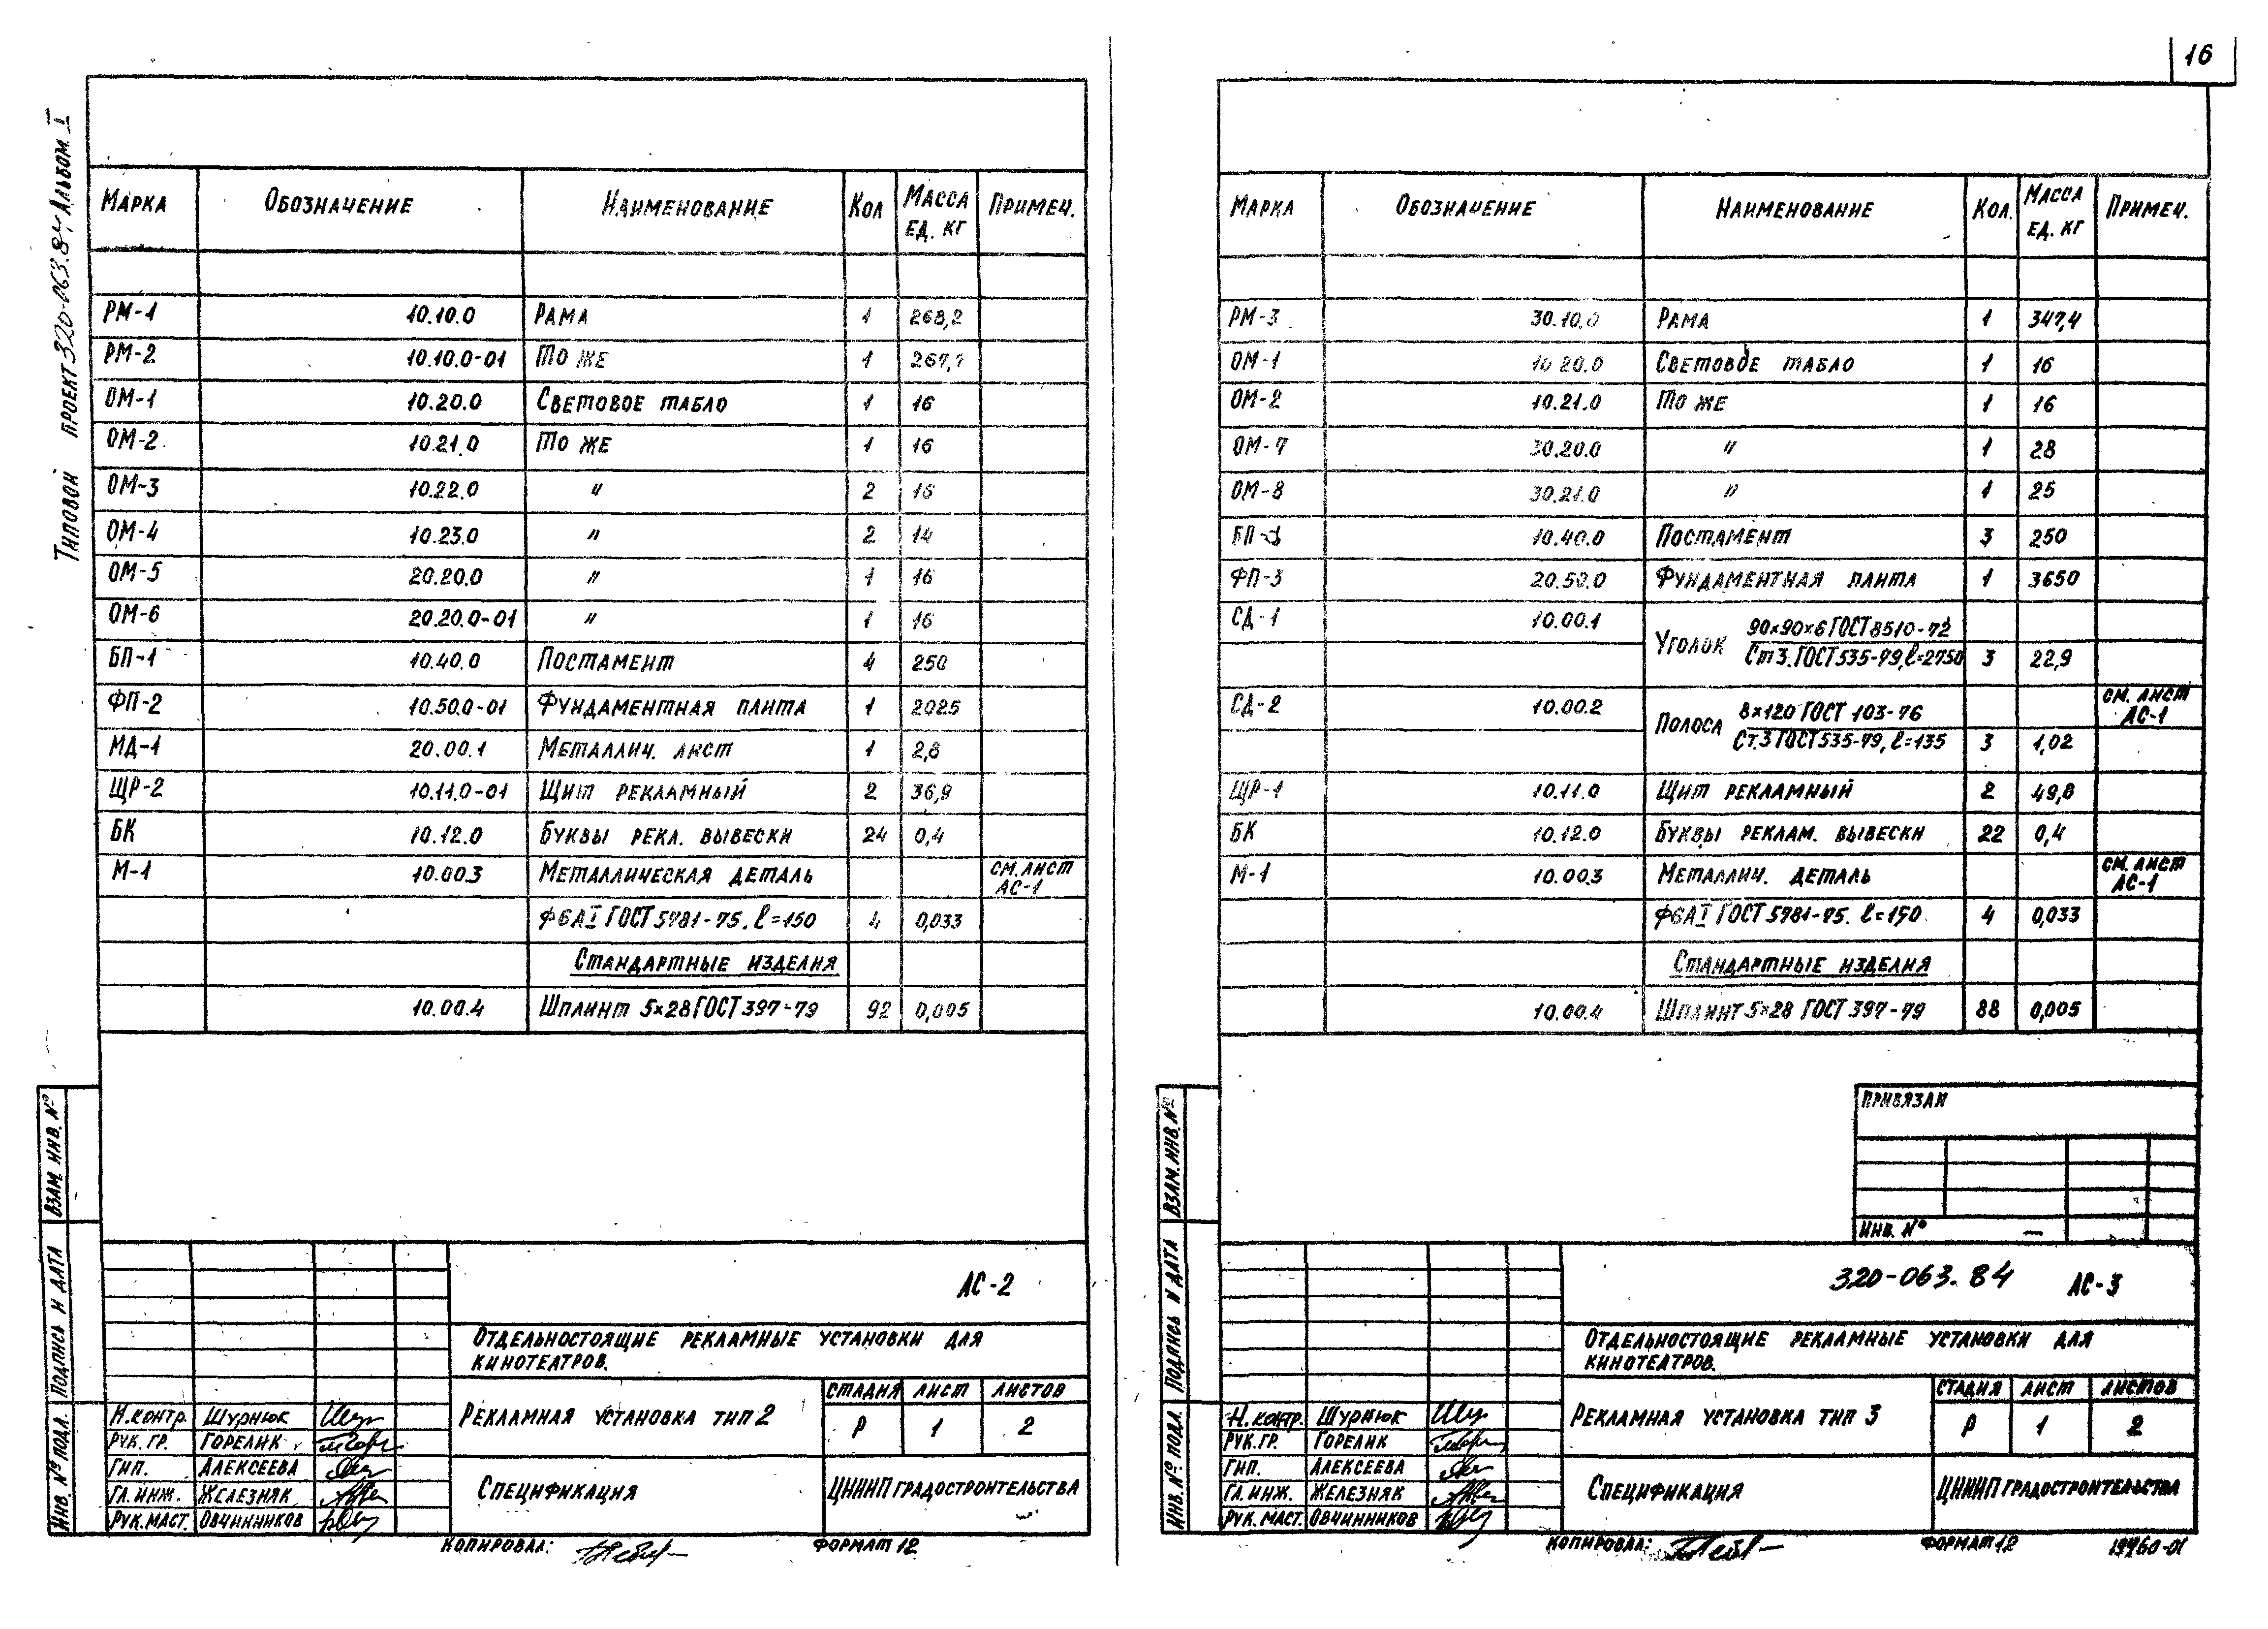 16
Типовой проект 320-063.84, Альбом I
Марка Обозначение Наименование Кол Масса ед. кг Примеч.
РМ-1 10.10.0 Рама 1 268,2
РМ-2 10.10.0-01 То же 1
ОМ-1 10.20.0 Световое табло 1 16
ОМ-2 10.21.0 То же 1 16
ОМ-3 10.22.0 〃 2 16
ОМ-4 10.23.0 〃 2 14
ОМ-5 20.20.0 〃 1 16
ОМ-6 20.20.0-01 〃 1 16
БП-1 10.40.0 Постамент 4 250
ФП-2 10.50.0-01 Фундаментная плита 1 2025
МД-1 20.00.1 Металлич. лист 1 2,8
ЩР-2 10.11.0-01 Щит рекламный 2 36,9
БК 10.12.0 Буквы рекл. вывески 24 0,4
М-1 10.00.3 Металлическая деталь см. лист АС-1
Ф6АI ГОСТ 5781-75. ℓ=150 4 0,033
Стандартные изделия
10.00.4 Шплинт 5×28 ГОСТ 397-79 92 0,005
Взам. инв. №
Подпись и дата
Инв. № подл.
АС-2
Отдельностоящие рекламные установки для
кинотеатров.
Рекламная установка тип 2
Стадия Лист Листов
Р 1 2
Спецификация
ЦНИИП градостроительства
Н.контр. Шурнюк
Рук. гр. Горелик
ГИП. Алексеева
Гл. инж. Железняк
Рук. маст. Овчинников
Копировал: Формат 12
Марка Обозначение Наименование Кол. Масса ед. кг Примеч.
РМ-3 30.10.0 Рама 1 347,4
ОМ-1 10.20.0 Световое табло 1 16
ОМ-2 10.21.0 То же 1 16
ОМ-7 30.20.0 〃 1 28
ОМ-8 30.21.0 〃 1 25
БП-1 10.40.0 Постамент 3 250
ФП-3 20.50.0 Фундаментная плита 1 3650
СД-1 10.00.1 Уголок 90×90×6 ГОСТ 8510-72
Ст3. ГОСТ 535-79, ℓ=2750 3 22,9
СД-2 10.00.2 Полоса 8×120 ГОСТ 103-76 см. лист АС-1
Ст.3 ГОСТ 535-79, ℓ=135 3 1,02
ЩР-1 10.11.0 Щит рекламный 2 49,8
БК 10.12.0 Буквы реклам. вывески 22 0,4
М-1 10.00.3 Металлич. деталь см. лист АС-1
Ф6АI ГОСТ 5781-75. ℓ=150 4 0,033
Стандартные изделия
10.00.4 Шплинт 5×28 ГОСТ 397-79 88 0,005
Привязан
Инв. № —
Взам. инв. №
Подпись и дата
Инв. № подл
320-063.84 АС-3
Отдельностоящие рекламные установки для
кинотеатров.
Рекламная установка тип 3
Стадия Лист Листов
Р 1 2
Спецификация
ЦНИИП градостроительства
Н.контр. Шурнюк
Рук. гр. Горелик
ГИП. Алексеева
Гл. инж. Железняк
Рук. маст. Овчинников
Копировал: Формат 12 19960-01